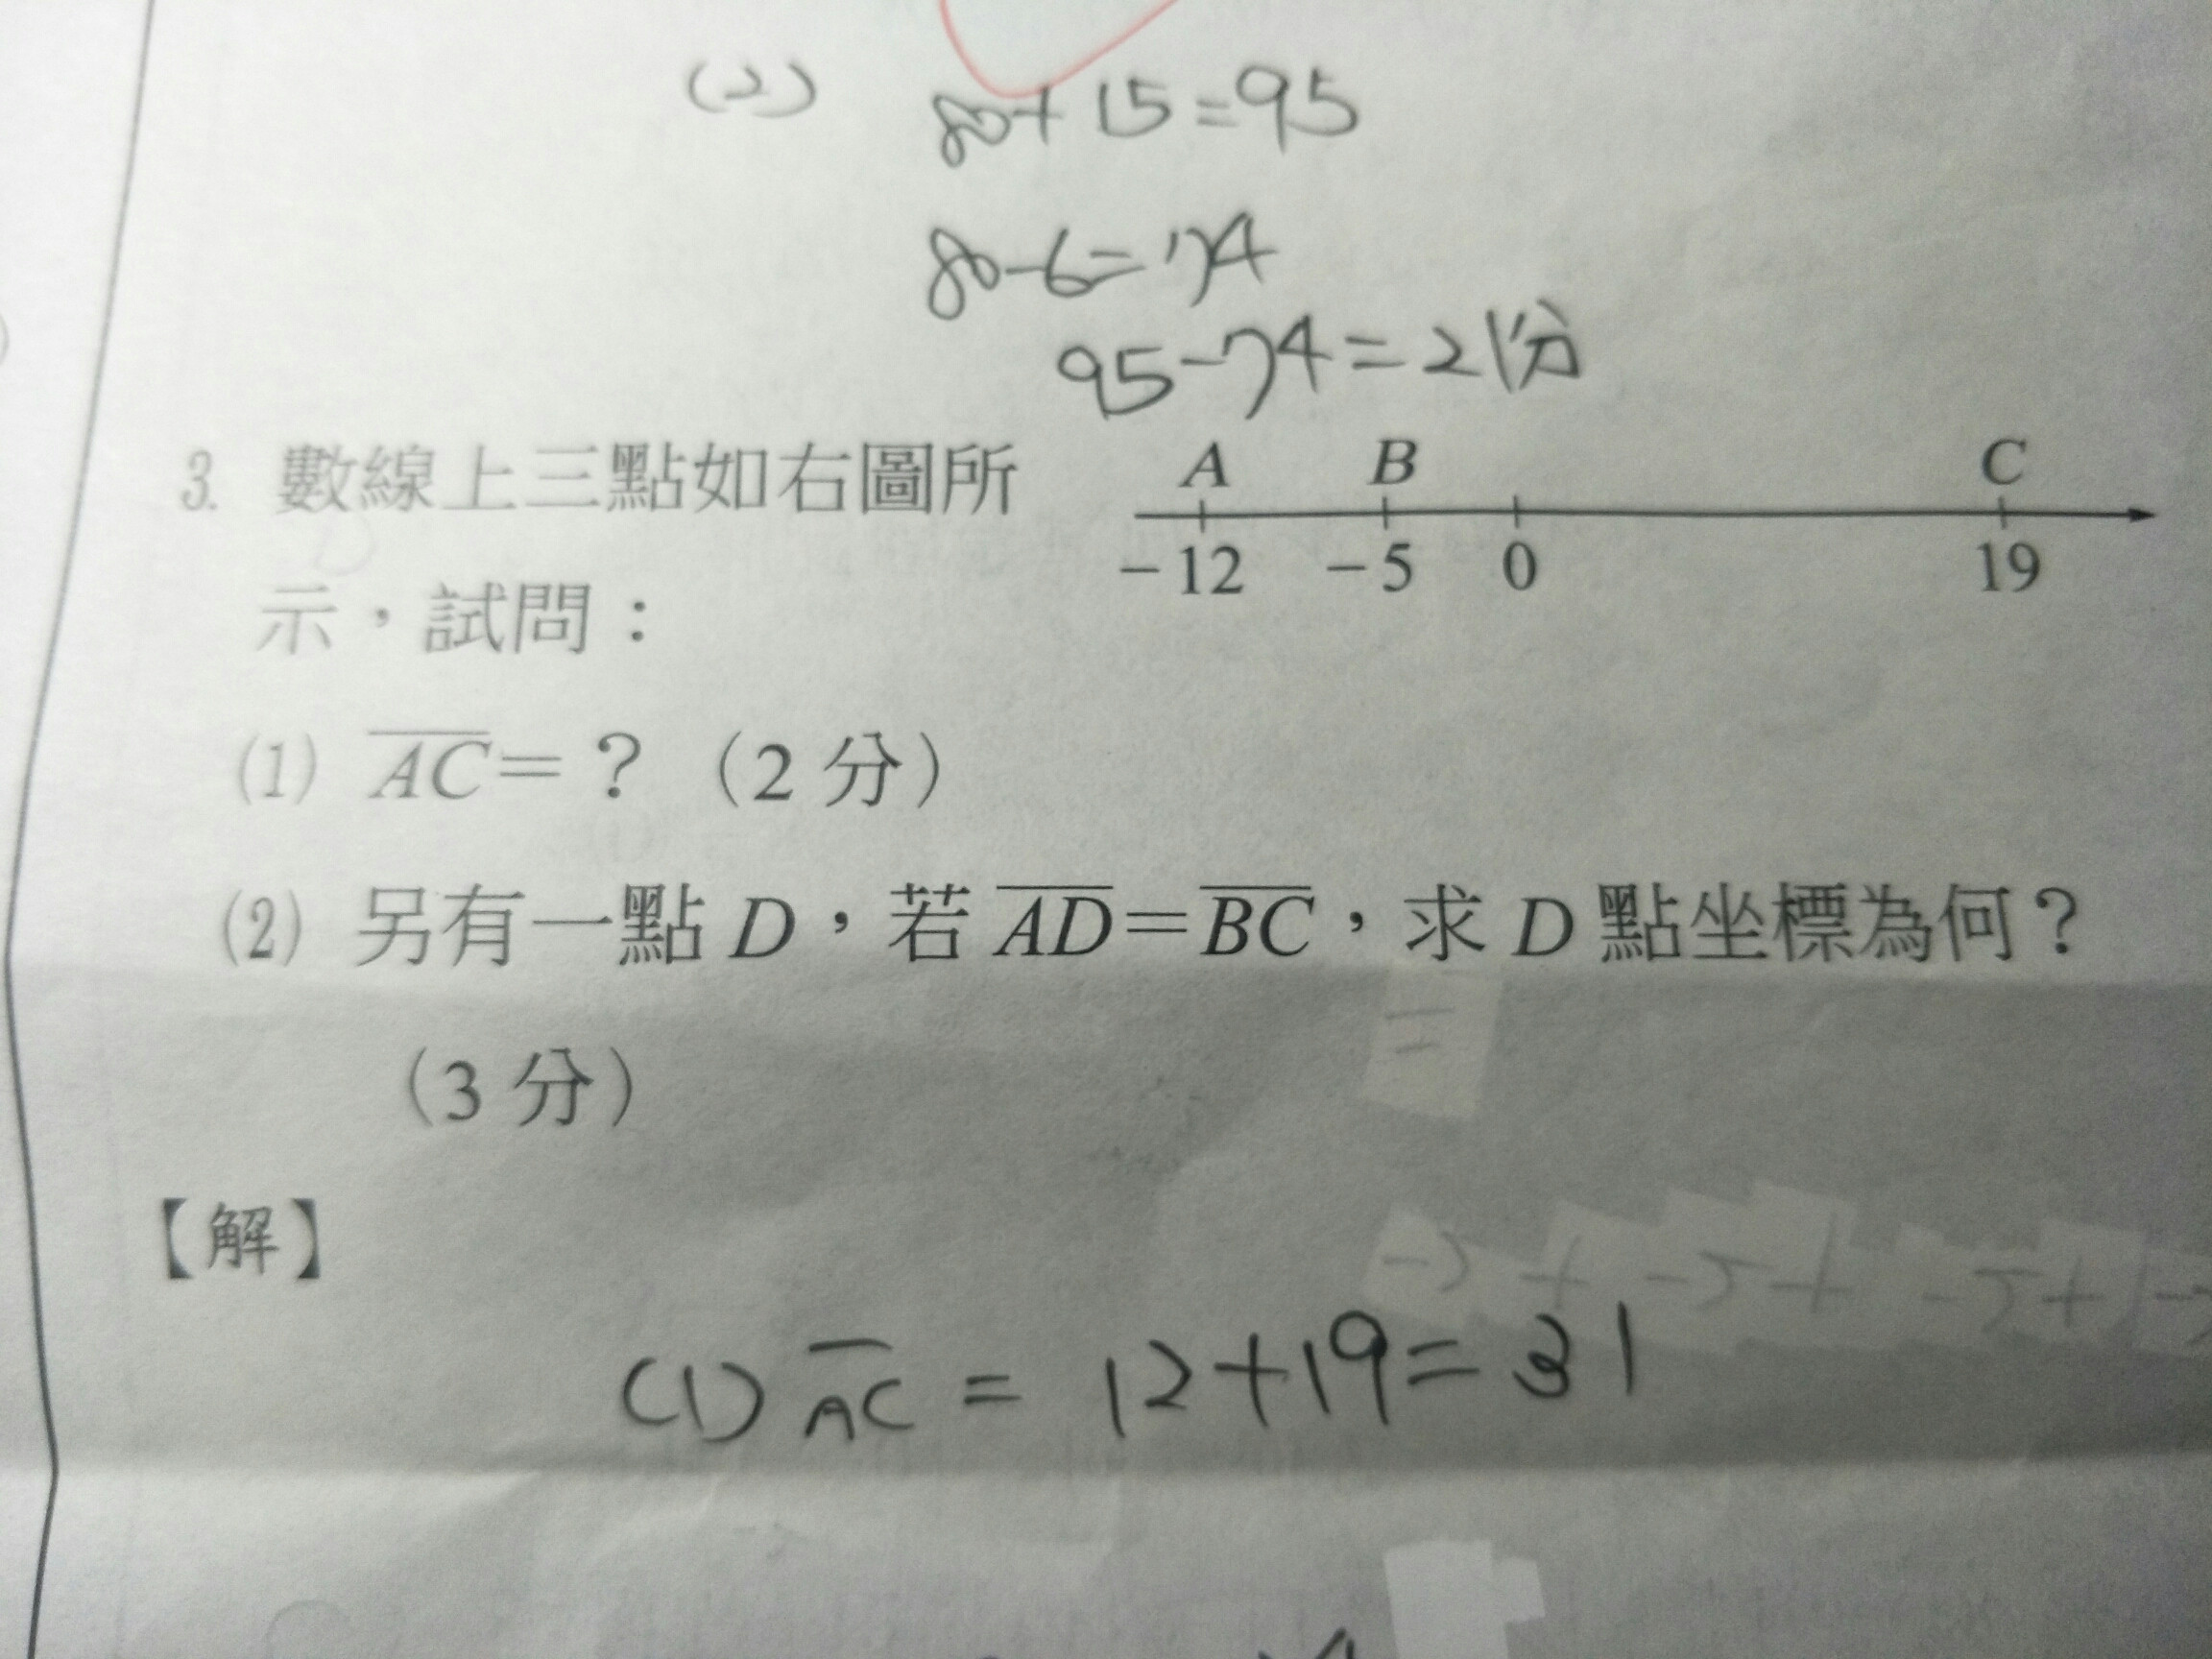 (2) 80+15=95
80-6=74
95-74=21分
3. 數線上三點如右圖所
A B C
-12 -5 0 19
示，試問：
(1) AC=？（2分）
(2) 另有一點D，若AD=BC，求D點坐標為何？
（3分）
【解】
(1) AC = 12+19=31